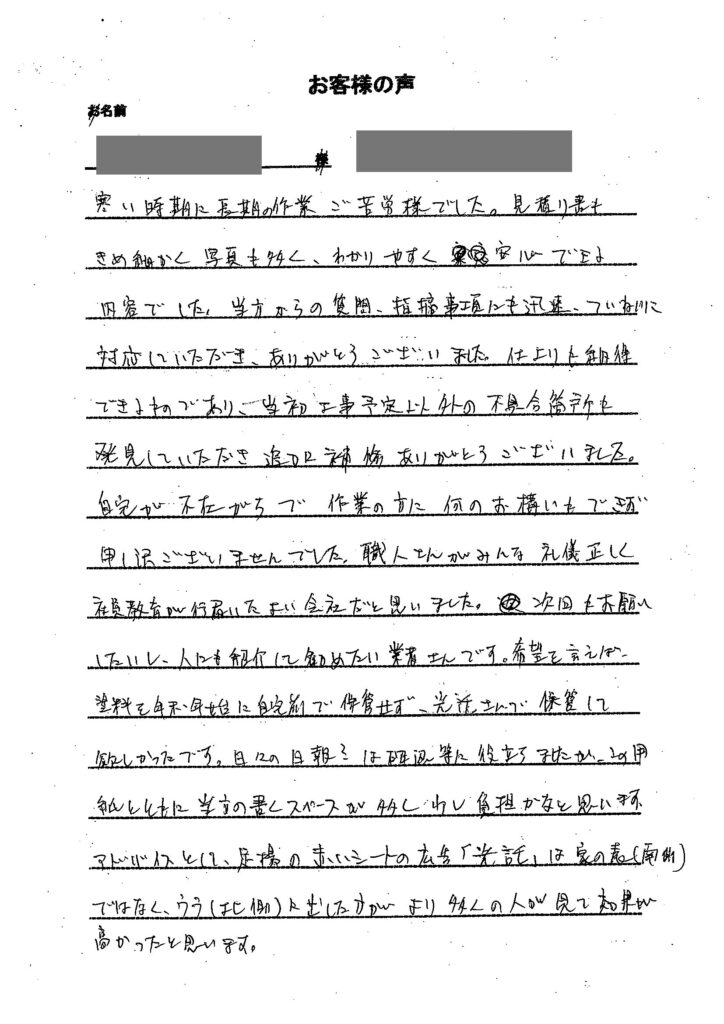 お客様の声
お名前
様
寒い時期に長期の作業 ご苦労様でした。見積り書も
きめ細かく 写真も多く、わかりやすく 安心できる
内容でした。当方からの質問、指摘事項にも迅速、ていねいに
対応していただき、ありがとうございました。仕上りも納得
できるものであり、当初工事予定以外の不具合箇所も
発見していただき 追加補修 ありがとうございました。
自宅が 不在がちで 作業の方に 何のお構いもできず
申し訳ございませんでした。職人さんがみんな 礼儀正しく
社員教育が行届いたよい会社だと思いました。 次回もお願い
したいし、人にも紹介して勧めたい業者さんです。希望を言えば、
塗料を年末年始に自宅前で保管せず、光託さんで 保管して
欲しかったです。日々の日報は確認等に役立ちましたが、この用
紙とともに当方の書くスペースが多く少し負担かなと思います
アドバイスとして、足場の赤いシートの広告「光託」は家の表(南側)
ではなく、ウラ(北側)に出した方が より多くの人が見て効果が
高かったと思います。